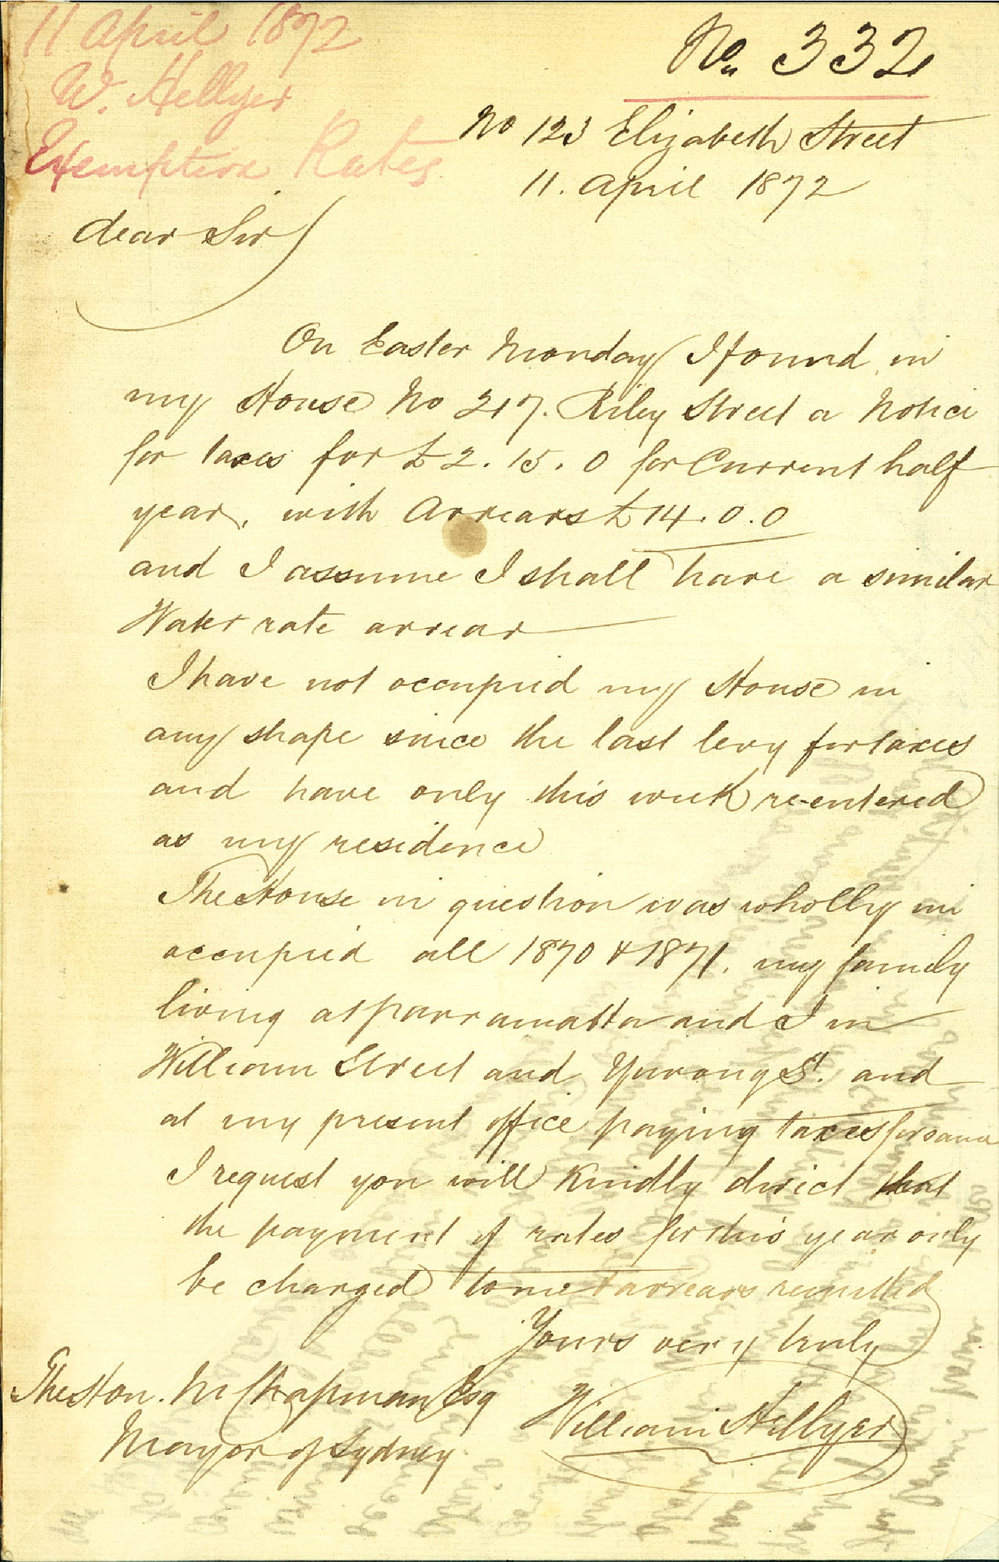 11 April 1872
W. Hellyer
Exemption Rates
No. 332
No 123 Elizabeth Street
11. April 1872
dear Sir
On Easter Monday I found in
my House No 217. Riley Street a Notice
for taxes for £2.15.0 for Current half
year, with Arrears £14.0.0
and I assume I shall have a similar
Water rate arrear
I have not occupied my House in
any shape since the last levy for taxes
and have only this week re-entered
as my residence
The House in question was wholly un
occupied all 1870 & 1871. my family
living at parramatta and I in
William Street and Yurong St. and
at my present office paying taxes for same
I request you will Kindly direct that
the payment of rates for this year only
be charged to me & arrears remitted
Yours very truly
William Hellyer
The Hon. M Chapman Esq
Mayor of Sydney